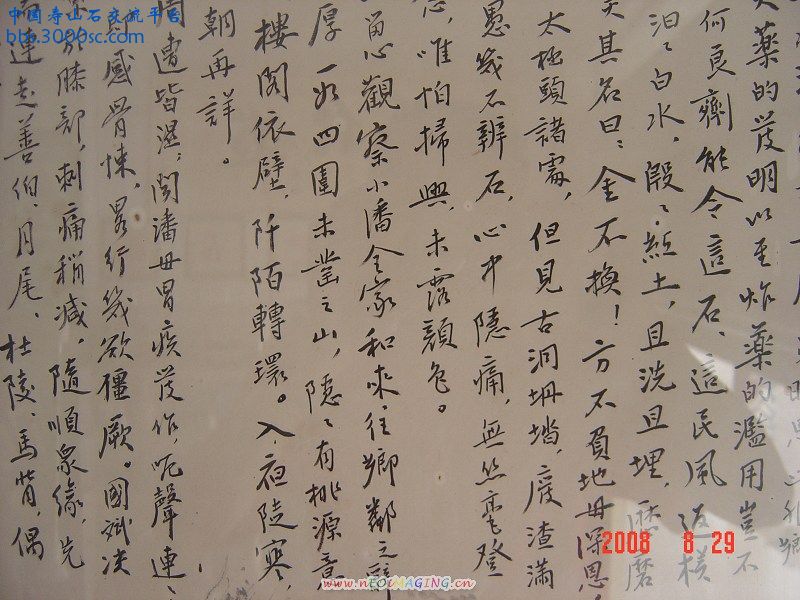 藥的發明以至炸藥的濫用豈不
何良劑能令這石、這民風返樸
汨汨白水，殷殷紅土，且洗且埋，
其名曰：金不換！方不負地母深恩
太極頭諸處，但見古洞坍塌，廢渣滿
愚幾石辨石，心中隱痛，無些毫登
唯怕掃興，未露顏色。
留心觀察小潘全家和來往鄉鄰之
厚一如四圍未鑿之山，隱隱有桃源意
樓閣依壁，阡陌轉環。入夜陡寒，
朝再詳。
周遭皆濕，聞潘毋冒疾發作，呃聲連連
感骨悚，畧行幾欲殭厥。國斌決
膝部，刺痛稍減，隨順眾緣，先
連走善伯、月尾、杜陵、馬背，偶
中国寿山石交流平台
bbs.3000sc.com
2008 8 29
www.nEOiMAGING.cn